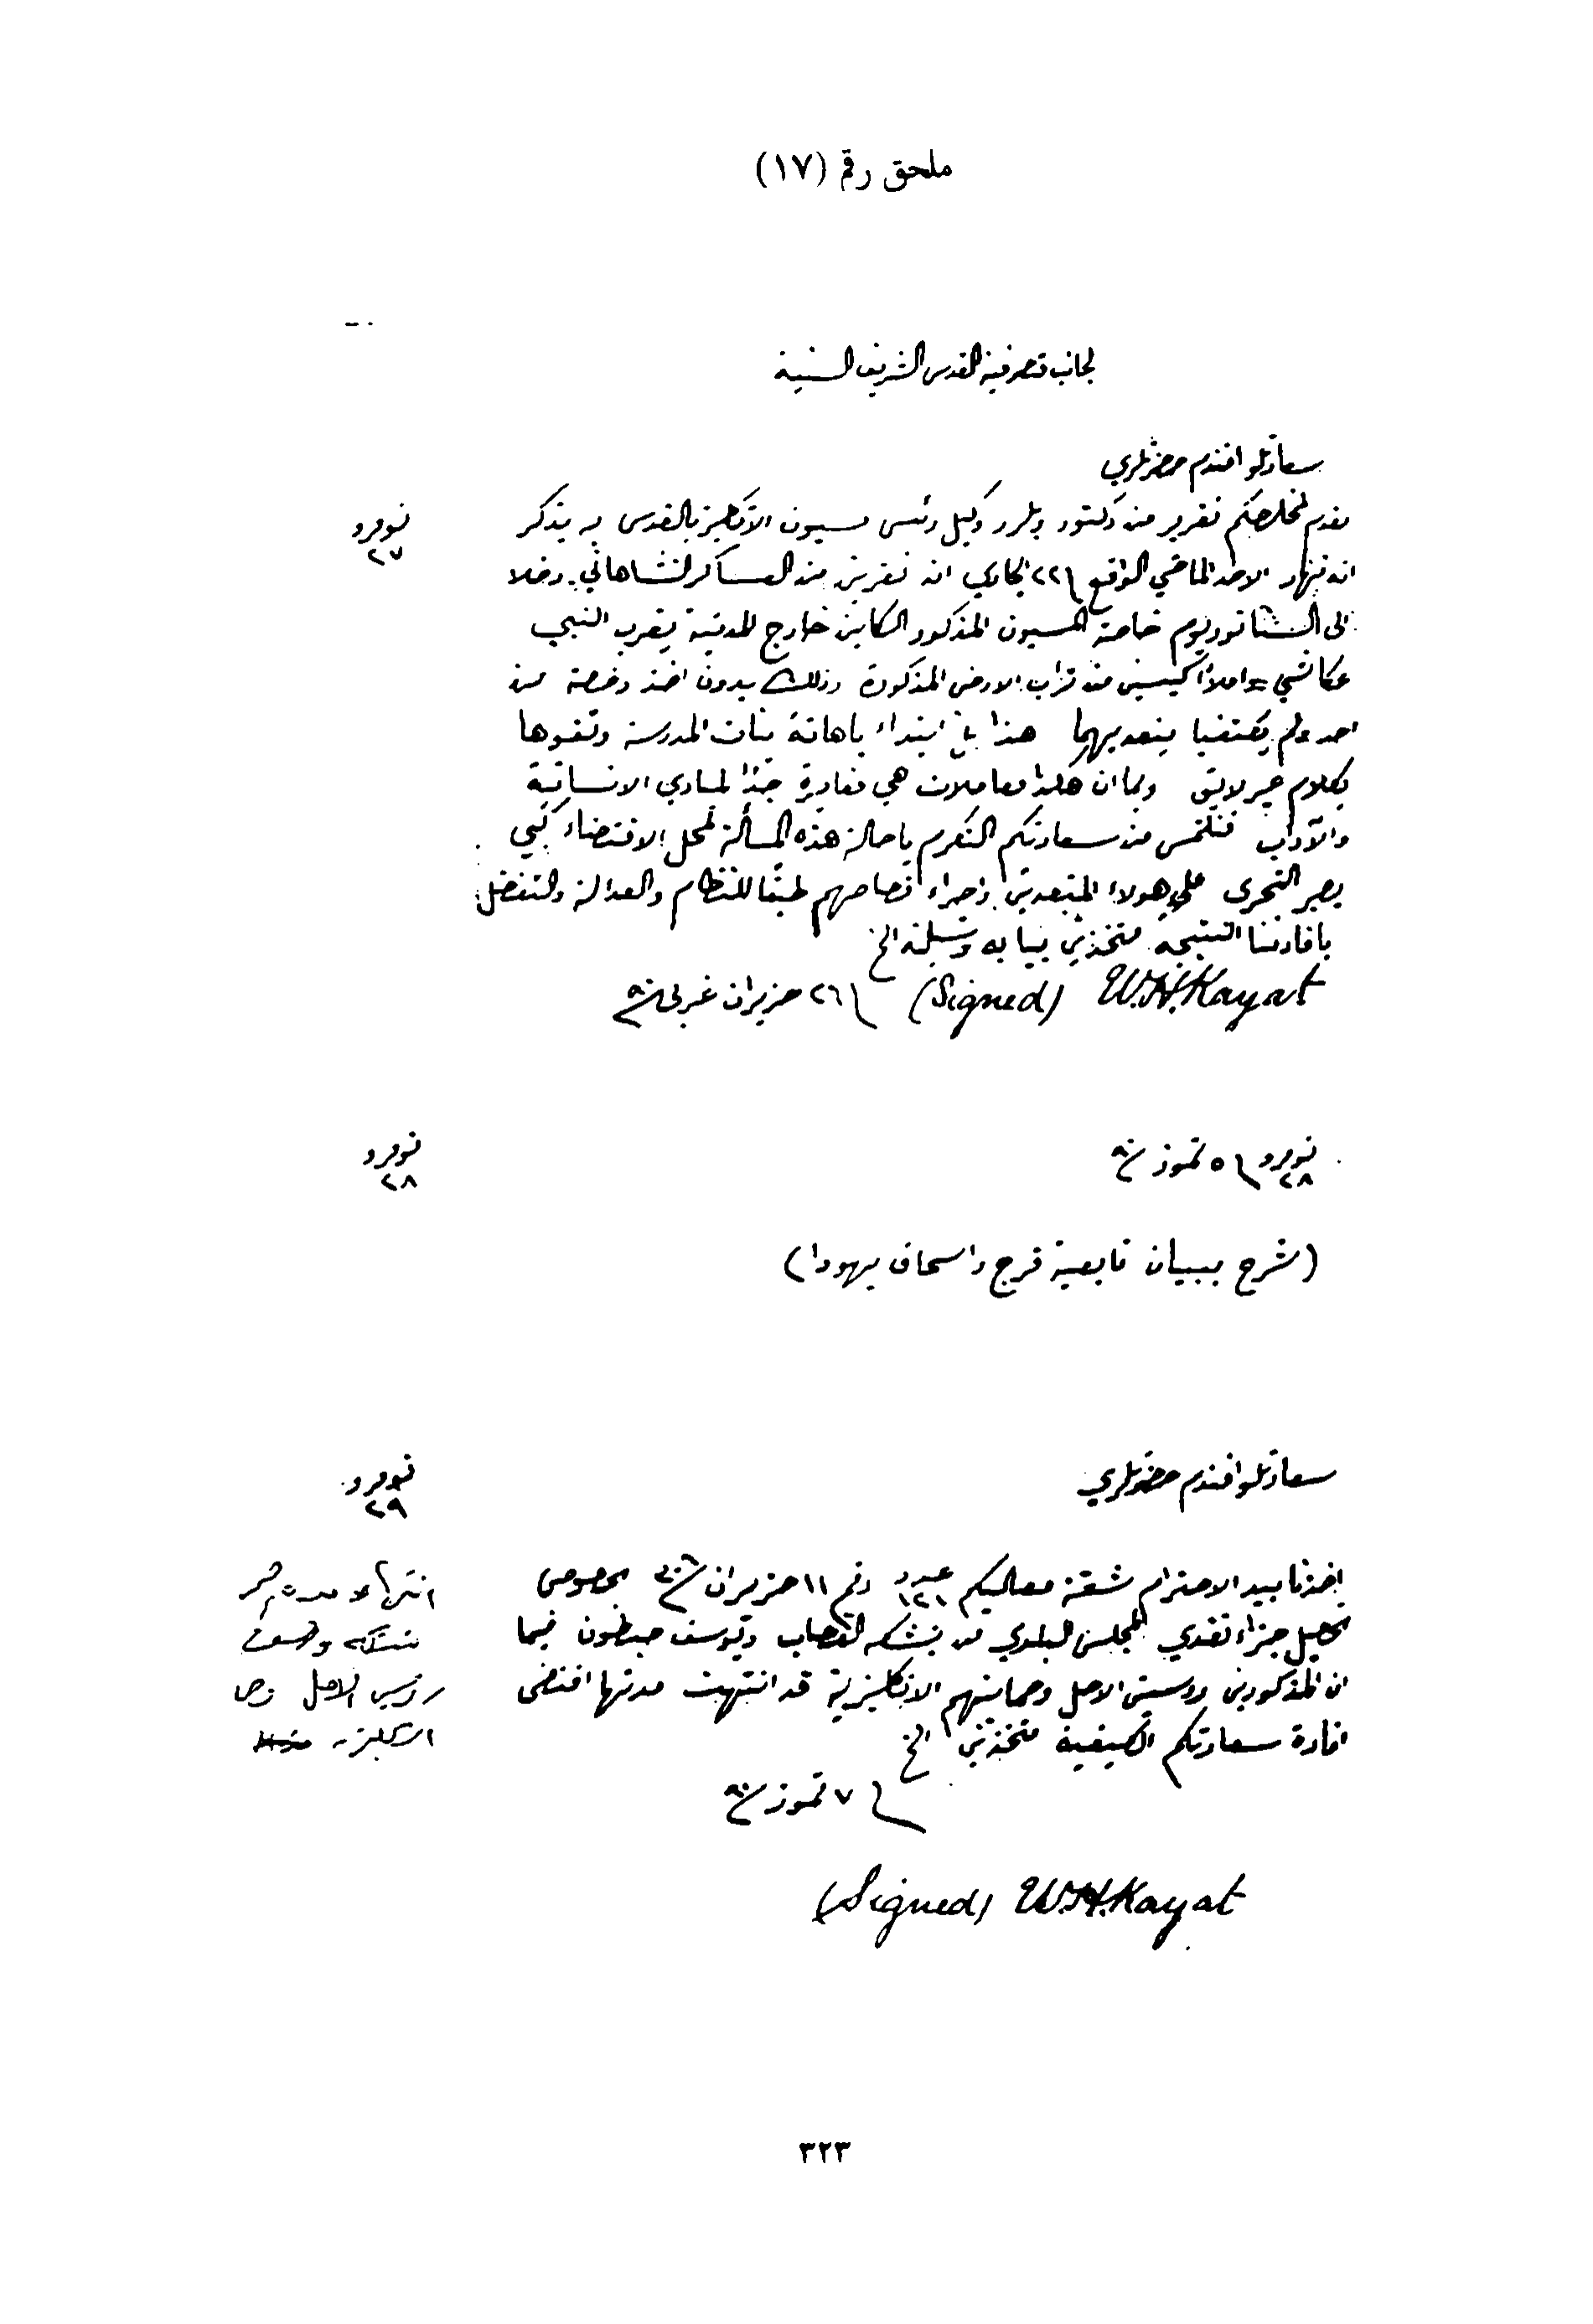 ملحق رقم (١٧)
لجانب متصرفية القدس الشريف السنية
سعادتلو افندم حضرتلري
نومرو ٢٧
تقدم لمخلصكم تقرير من دكتور ويلر وكيل رئيس مسيون الانكليز بالقدس به يذكر
انه نهار الاحد الماضي الواقع ٢٢ الجاري ان نفرين من العساكر الشاهاني دخلا
الى السناتوريوم خاصة المسيون المذكور الكاين خارج المدينة بقرب النبي
عكاشي واملأا كيسين من تراب الارض المذكورة وذلك بدون اخذ رخصة من
احد ولم يكتفيا بتعديهما هذا بل ابتداء باهانة بنات المدرسة وتفوها
بكلام غير لايق وبما ان هكذا معاملات هي مغايرة جدًا لمبادي الانسانية
والآداب فنلتمس من سعادتكم التكرم باحالة هذه المسألة لمحل الاقتضاء كي
يصير التحري على هولاء المتعدين واجراء قصاصهم طبقًا للنظام والعدالة والتفضل
بافادتنا النتيجة متخذين الخ
W.H.Kayat (Signed) ٢٦ حزيران غربي ٩٠
نومرو ٢٨ ٥ تموز ٩٠
نومرو ٢٨
(شرح ببيان تابعية فرج واسحاق يهودا)
سعادتلو افندم حضرتلري
نومرو ٢٩
اخذنا بيد الاحترام شقة معاليكم عدد ١٢١ رقم ١١ حزيران بخصوص
تحصيل جزاء نقدي المجلس البلدي من القصاب ويوسف فبما
ان المذكورين روسيين الاصل وحمايتهم الانكليزية قد انتهت مدتها اقتضى
افادة سعادتكم الكيفية متخذين الخ
انتهاء مدة
روسين الاصل
٧ تموز ٩٠
(Signed) W.H.Kayat
٣٢٣